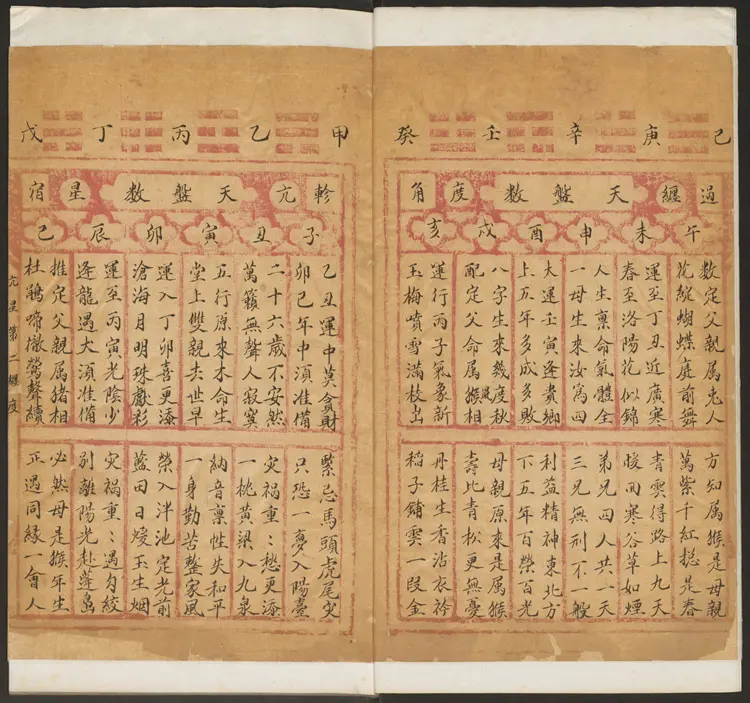 己庚辛壬癸
過纏天盤數度角
午未申酉戌亥
數定父親属兎人
花綻蝴蝶庭前舞
運至丁丑近廣寒
春至洛陽花似錦
人生稟命氣體全
一母生來汝寫四
大運壬寅逢貴鄉
上五年多成多敗
八字生來幾度秋
配定父命属猴相
運行丙子氣象新
玉梅噴雪滿枝出
方知属猴是母親
萬紫千紅摠是春
青雲得路上九天
暖回寒谷草如煙
弟兄四人共一天
三兄無刑不一般
利益精神東北方
下五年百榮百光
母親原來是属猴
壽比青松更無憂
丹桂生香沾衣衿
稻子鋪雲一段金
甲乙丙丁戊
軫亢天盤數星宿
子丑寅卯辰巳
乙丑運中莫貪財
卯巳年中湏准備
二十六歲不安然
萬籟無聲人寂寞
五行原來木命生
堂上雙親去世早
運入丁卯喜更添
滄海月明珠獻彩
運至丙寅光陰少
逢龍遇犬湏准備
推定父親属猪相
杜鵑啼徹鶯聲續
緊忌馬頭虎尾灾
只恐一夢入陽臺
灾禍重〻愁更添
一枕黃梁入九泉
納音稟性失和平
一身勤苦整家風
榮入泮池定光前
藍田日煖玉生烟
灾禍重〻遇勾絞
別離陽光赴蓬島
必然母是猴年生
正遇同緣一會人
亢星第二纏度